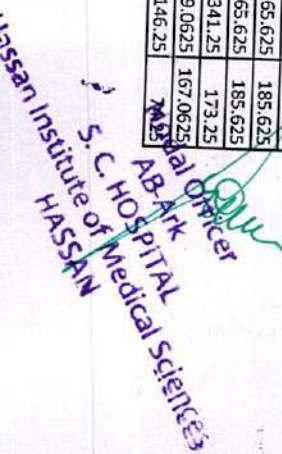 65.625 185.625
65.625 185.625
341.25 173.25
9.0625 167.0625
146.25
Officer
AB-Ark
S. C. HOSPITAL
Hassan Institute of Medical Sciences
HASSAN